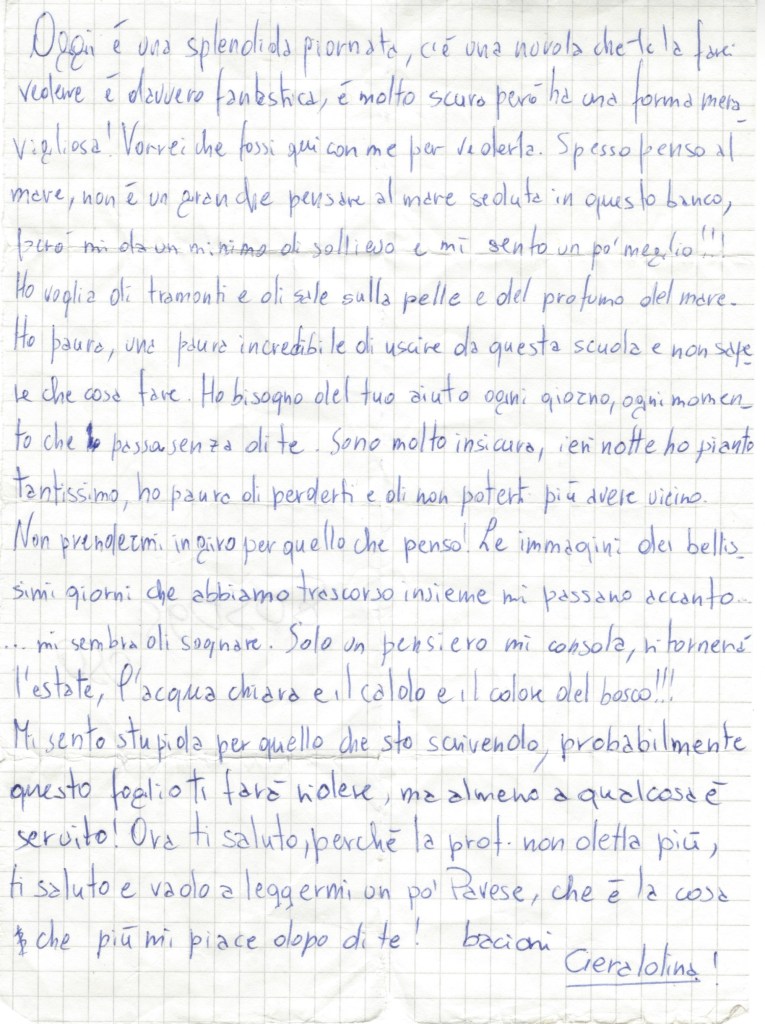 Oggi è una splendida giornata, c'è una nuvola che te la farei
vedere è davvero fantastica, è molto scura però ha una forma mera_
vigliosa! Vorrei che fossi qui con me per vederla. Spesso penso al
mare, non è un gran che pensare al mare seduta in questo banco,
però mi da un minimo di sollievo e mi sento un po' meglio!!!
Ho voglia di tramonti e di sale sulla pelle e del profumo del mare.
Ho paura, una paura incredibile di uscire da questa scuola e non sape_
re che cosa fare. Ho bisogno del tuo aiuto ogni giorno, ogni momen_
to che passa senza di te. Sono molto insicura, ieri notte ho pianto
tantissimo, ho paura di perderti e di non poterti più avere vicino.
Non prendermi in giro per quello che penso! Le immagini dei bellis_
simi giorni che abbiamo trascorso insieme mi passano accanto...
... mi sembra di sognare. Solo un pensiero mi consola, ritornerà
l'estate, l'acqua chiara e il caldo e il colore del bosco!!!
Mi sento stupida per quello che sto scrivendo, probabilmente
questo foglio ti farà ridere, ma almeno a qualcosa è
servito! Ora ti saluto, perché la prof. non detta più,
ti saluto e vado a leggermi un po' Pavese, che è la cosa
che più mi piace dopo di te! bacioni
Geraldina!